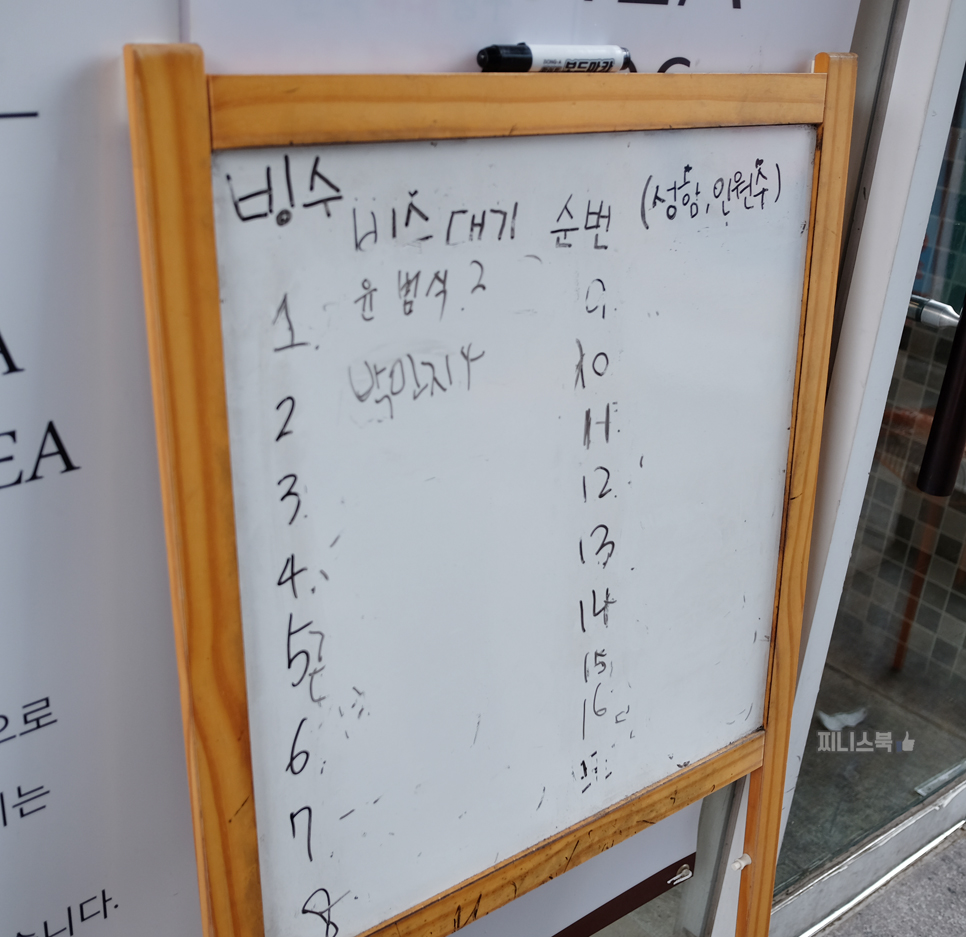 DONG-A 보드마카
AC
EA
빙수
비즈 대기 순번 (성함, 인원수)
1. 윤범식 2
2 박민지 4
3.
4.
5
6
7
8.
9.
10
11.
12.
13
14
15
16
으로
는
습니다.
찌니스북